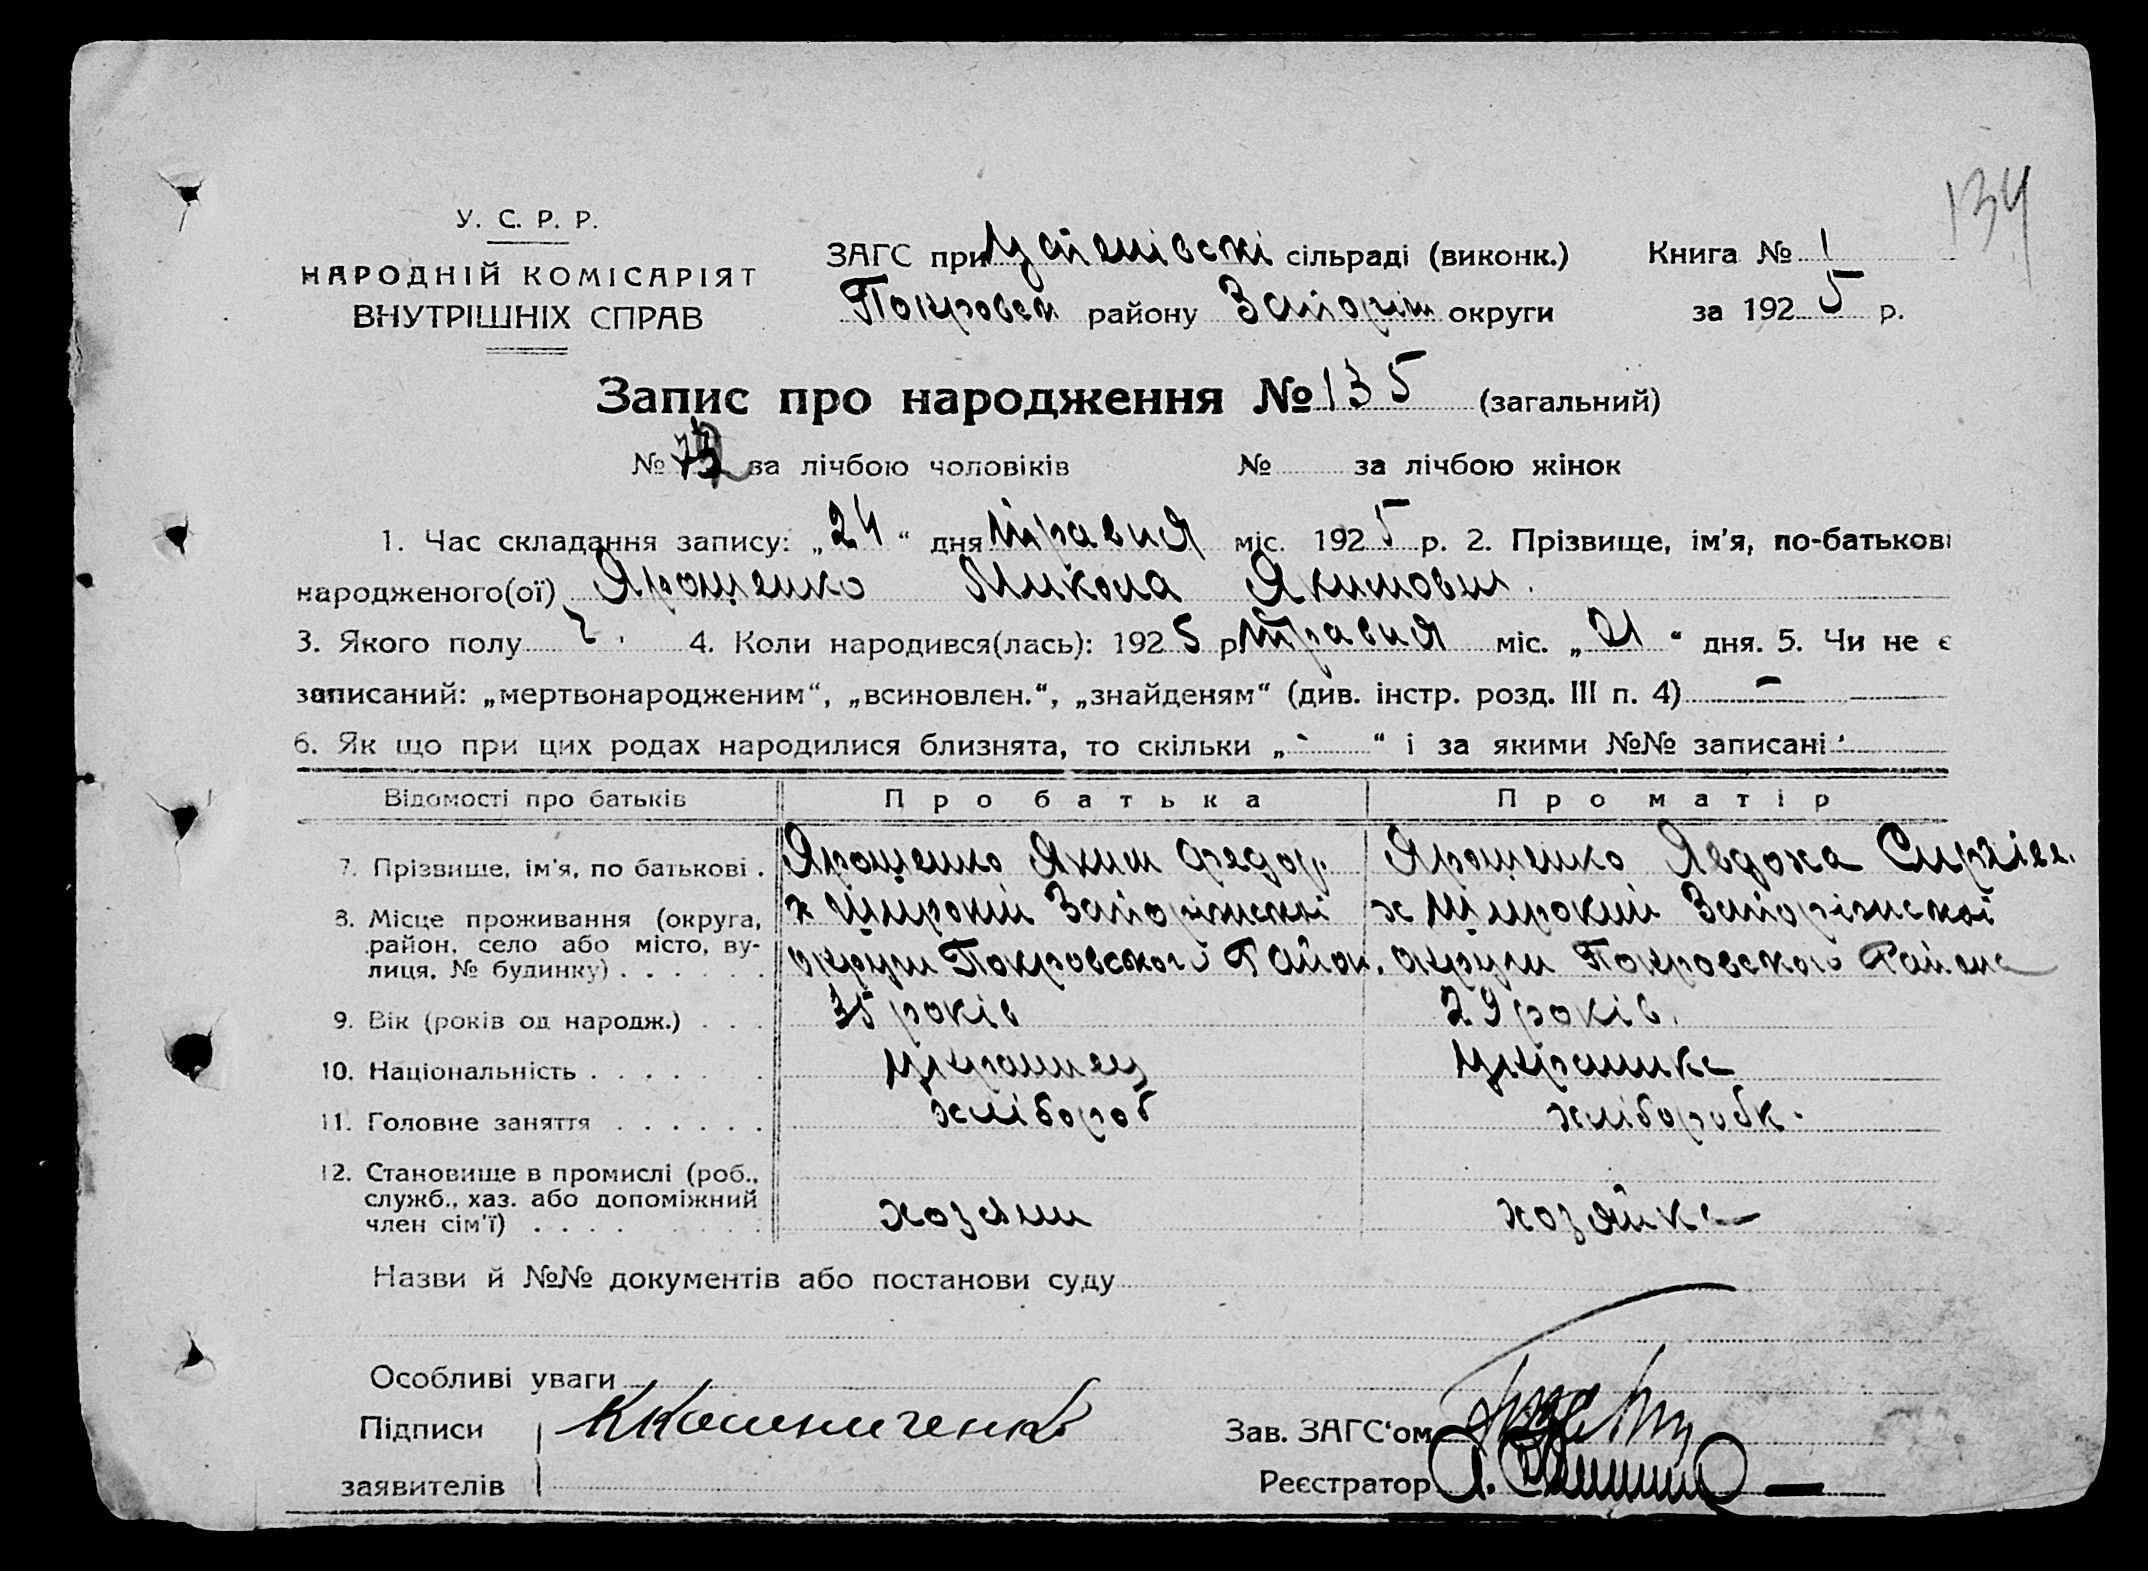 134
У. С. Р. Р.
НАРОДНІЙ КОМІСАРІЯТ
ВНУТРІШНІХ СПРАВ
ЗАГС при сільраді (виконк.) Книга № 1
Покровськ району Запоріж округи за 1925 р.
Запис про народження № 135 (загальний)
№ за лічбою чоловіків № за лічбою жінок
1. Час складання запису: „24“ дня травня міс. 1925 р. 2. Прізвище, ім'я, по-батькові
народженого(ої) Ярошенко Микола Якимович.
3. Якого полу ч. 4. Коли народився(лась): 1925 р травня міс. „21“ дня. 5. Чи не є
записаний: „мертвонародженим“, „всиновлен.“, „знайденям“ (див. інстр. розд. III п. 4) -
6. Як що при цих родах народилися близнята, то скільки „-“ і за якими №№ записані
Відомості про батьків Про батька Про матір
7. Прізвище, ім'я, по батькові. Ярошенко Яким Федор. Ярошенко Явдоха Сиргіев.
8. Місце проживання (округа, х Широкий Запоріжської х Широкий Запоріжської
район, село або місто, ву- округи Покровського Район. округи Покровського Района
лиця, № будинку)
9. Вік (років од народж.) 35 років 29 років.
10. Національність Українец Українка
11. Головне заняття хлібороб хліборобк.
12. Становище в промислі (роб.,
служб., хаз. або допоміжний хозяин хозяйка
член сім'ї)
Назви й №№ документів або постанови суду
Особливі уваги
Підписи Зав. ЗАГС'ом
заявителів Реєстратор